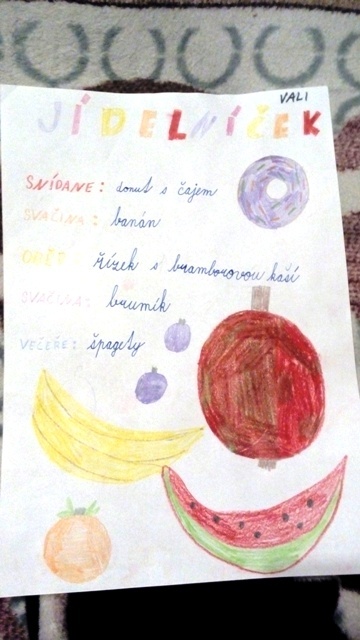 VALI
JÍDELNÍČEK
SNÍDANE: donut s čajem
SVAČINA: banán
OBĚD: řízek s bramborovou kaší
SVAČINA: brumík
VEČEŘE: špagety